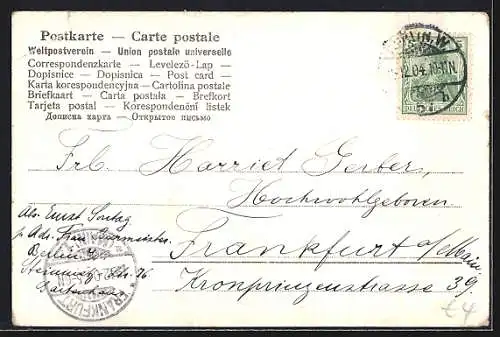 Postkarte — Carte postale
Weltpostverein — Union postale universelle
Correspondenzkarte — Levelező-Lap —
Dopisnice — Dopisnica — Post card —
Karta korespondencyjna — Cartolina postale
Briefkaart — Carta postala — Brefkort
Tarjeta postal — Korespondenční lístek
Дописна карта — Открытое письмо
BERLIN.W.
12.04.10-11N.
Frl. Harriet Gerber,
Hochwohlgeboren
Frankfurt a/Main
Kronprinzenstrasse 39.
Abs. Ernst
p. Adr. Frau
Berlin
Str. 26
FRANKFURT
£4